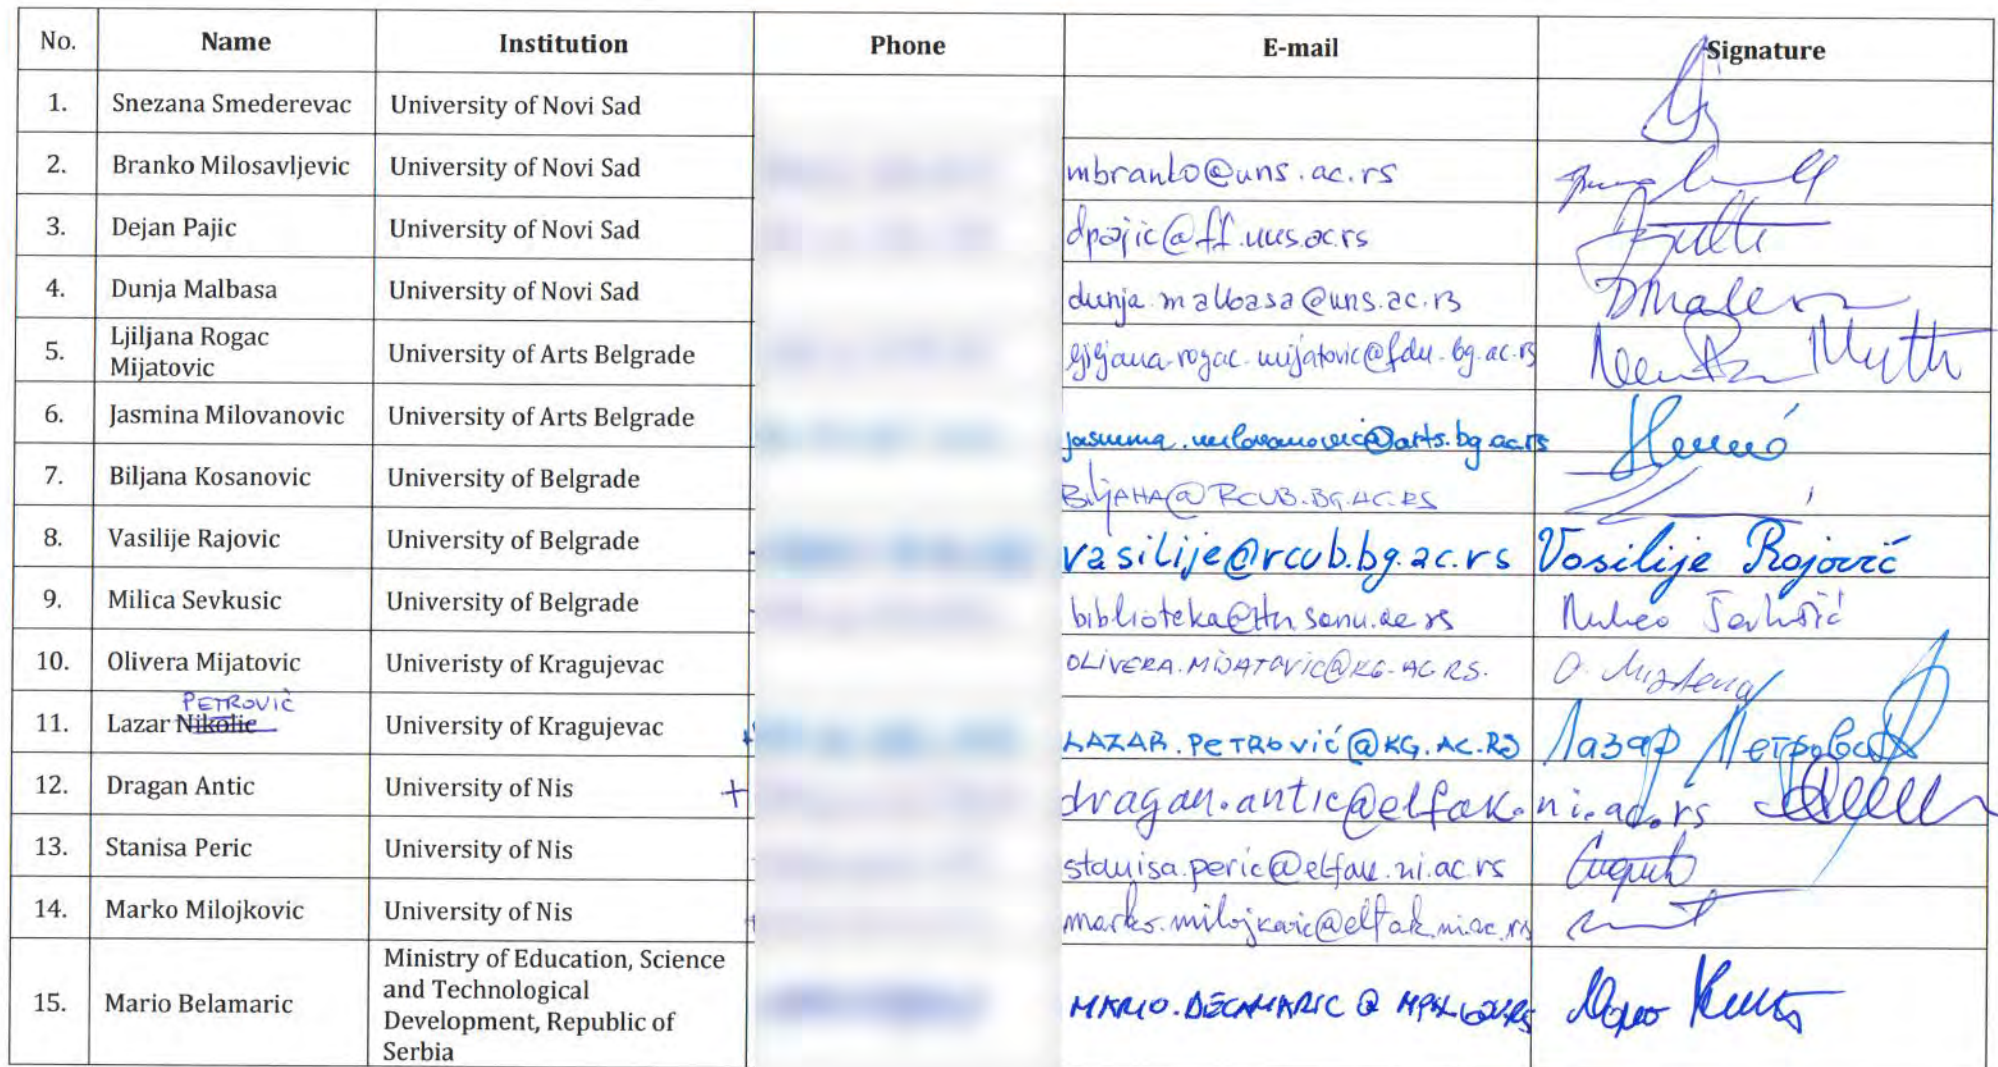 No. Name Institution Phone E-mail Signature
1. Snezana Smederevac University of Novi Sad
2. Branko Milosavljevic University of Novi Sad mbranko@uns.ac.rs
3. Dejan Pajic University of Novi Sad dpajic@ff.uns.ac.rs
4. Dunja Malbasa University of Novi Sad dunja.malbasa@uns.ac.rs
5. Ljiljana Rogac
Mijatovic University of Arts Belgrade ljiljana.rogac.mijatovic@fdu.bg.ac.rs
6. Jasmina Milovanovic University of Arts Belgrade jasmina.milovanovic@arts.bg.ac.rs
7. Biljana Kosanovic University of Belgrade BILJANA@RCUB.BG.AC.RS
8. Vasilije Rajovic University of Belgrade vasilije@rcub.bg.ac.rs Vasilije Rajović
9. Milica Sevkusic University of Belgrade
10. Olivera Mijatovic Univeristy of Kragujevac OLIVERA.MIJATOVIC@KG.AC.RS.
PETROVIĆ
11. Lazar Nikolic University of Kragujevac LAZAR.PETROVIĆ@KG.AC.RS Лазар Петровић
12. Dragan Antic University of Nis + dragan.antic@elfak.ni.ac.rs
13. Stanisa Peric University of Nis stanisa.peric@elfak.ni.ac.rs
14. Marko Milojkovic University of Nis marko.milojkovic@elfak.ni.ac.rs
15. Mario Belamaric Ministry of Education, Science
and Technological
Development, Republic of
Serbia